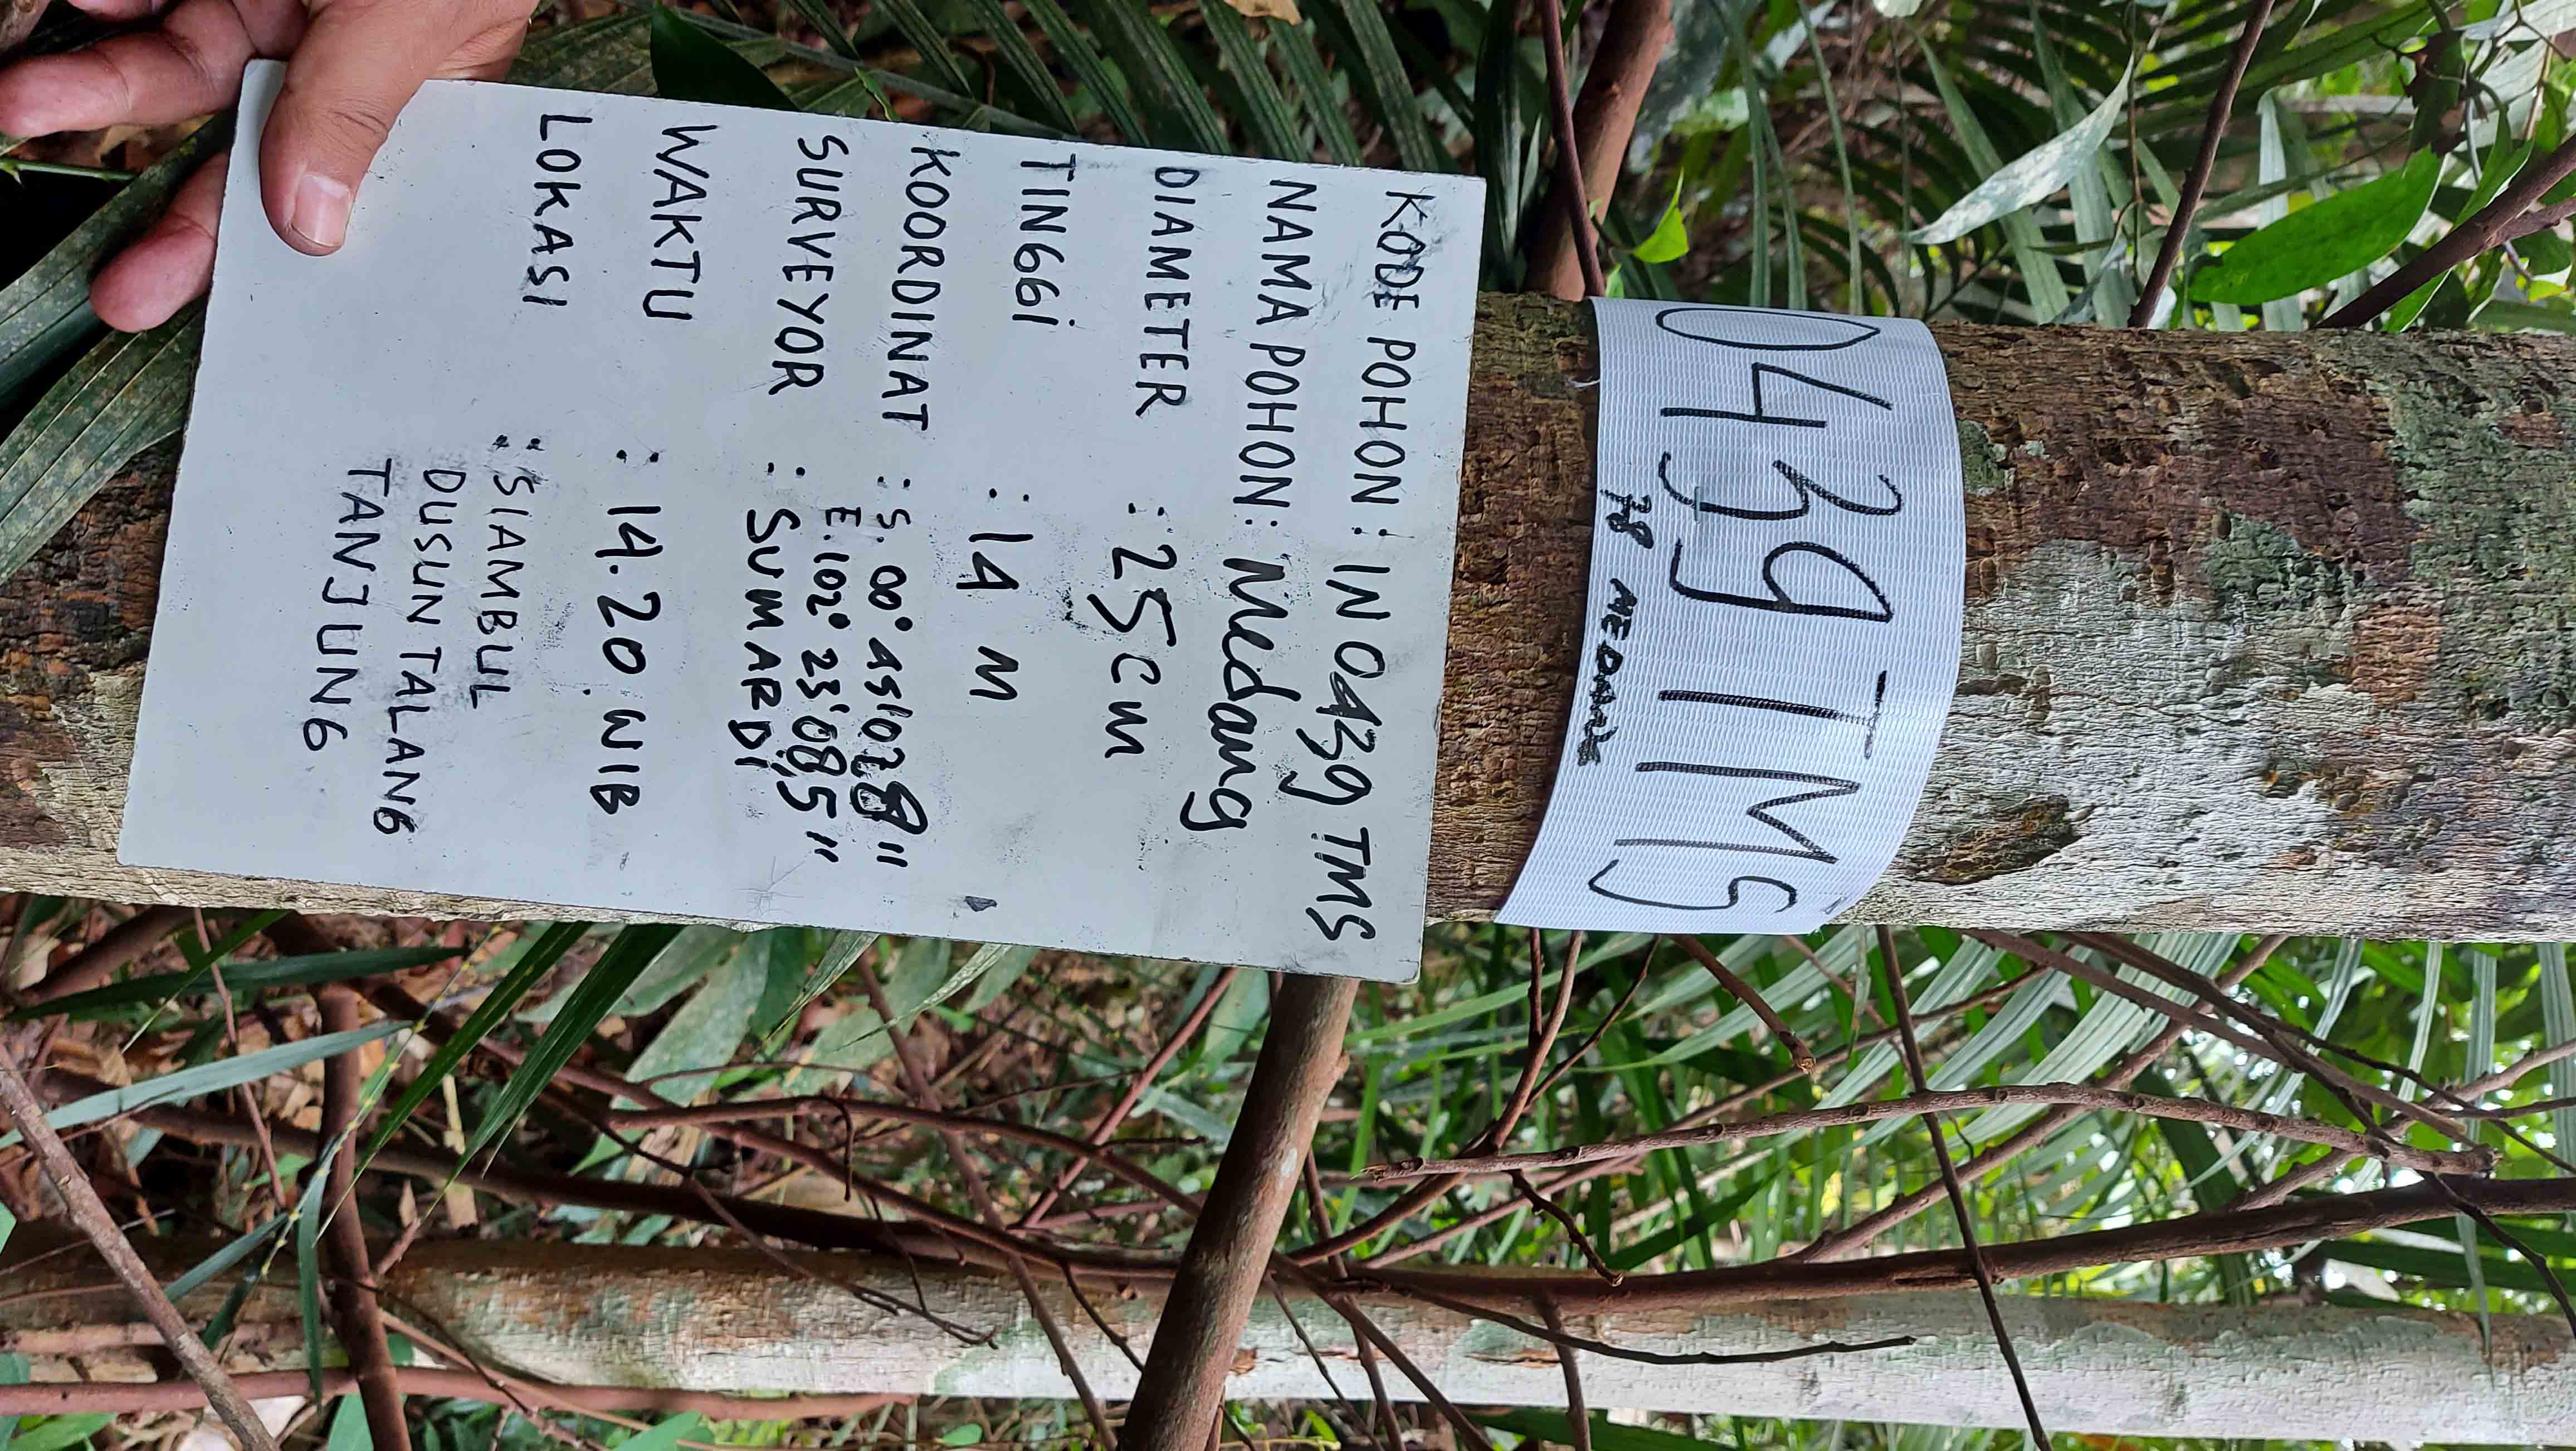 0439 TMS
78 MEDANG
KODE POHON : IN 0439 TMS
NAMA POHON : Medang
DIAMETER : 25 cm
TINGGI : 14 M
KOORDINAT : S. 00° 49'028"
E. 102° 23'085"
SURVEYOR : SUMARDI
WAKTU : 14.20 WIB
LOKASI : SIAMBUL
DUSUN TALANG
TANJUNG